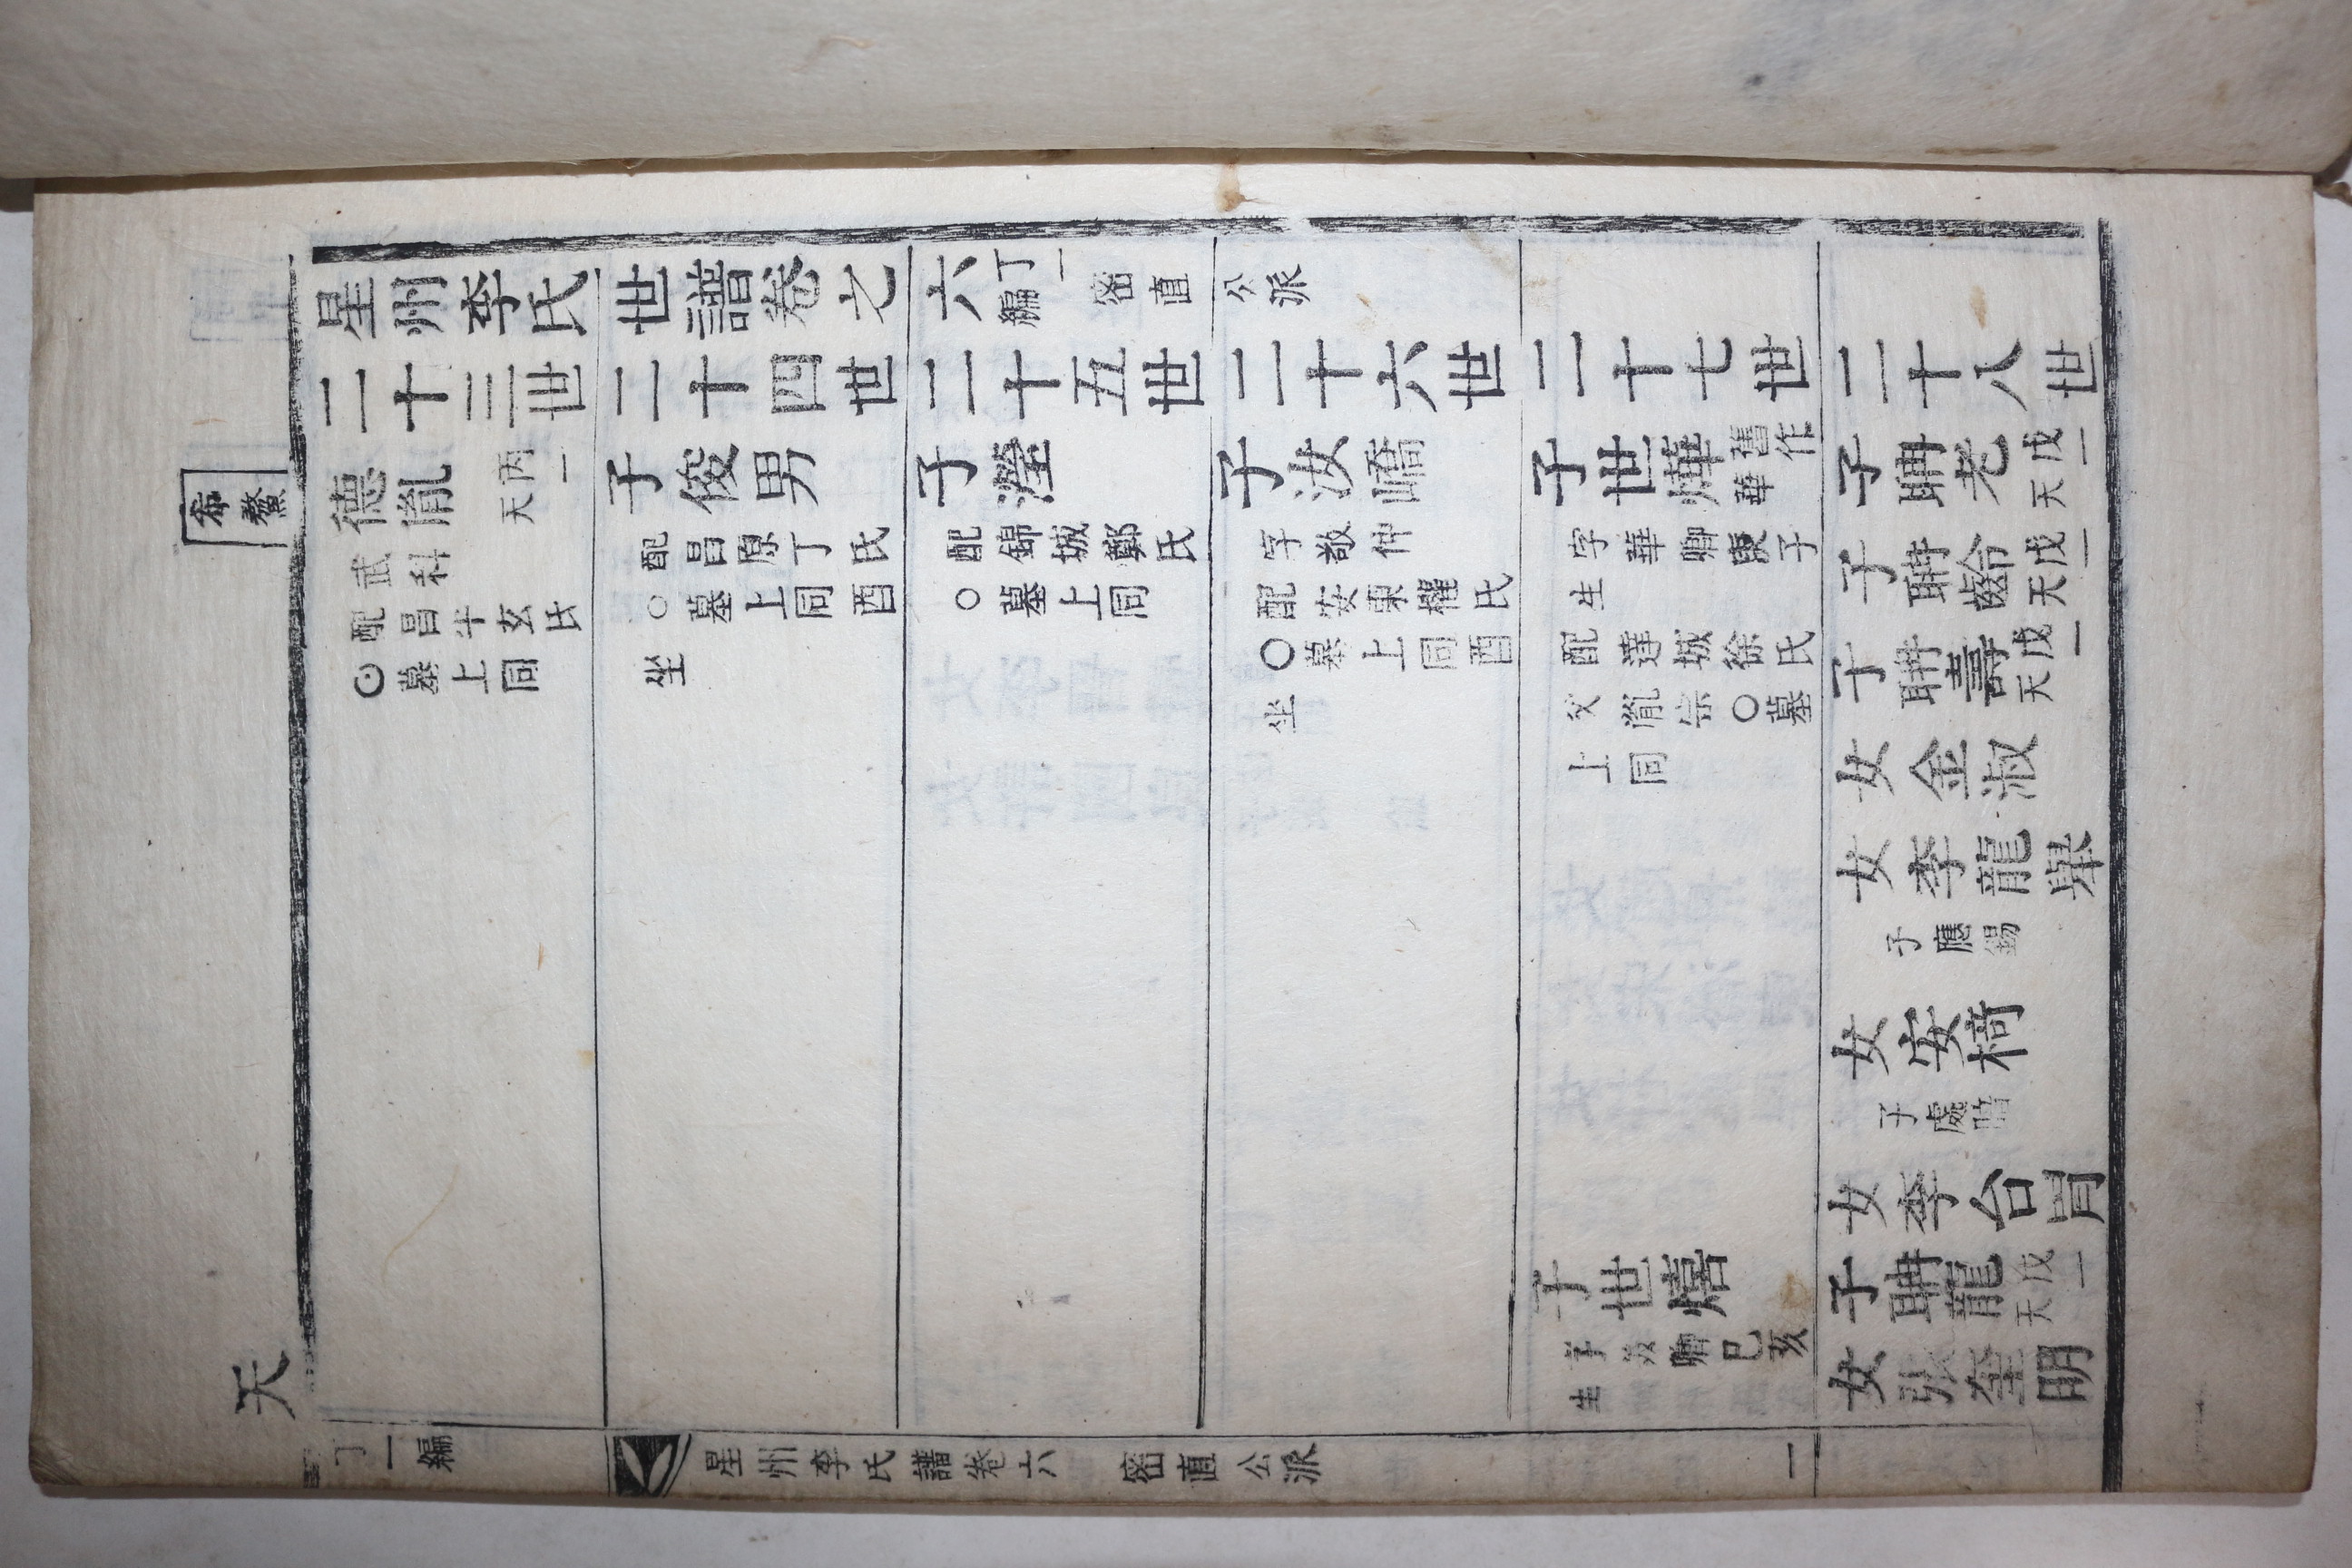 星州李氏世譜卷之六 丁一編 密直公派
二十三世
二十四世
二十五世
二十六世
二十七世
二十八世
希鰲
德胤 丙一天
武科
配昌半玄氏
墓上同
子俊男
配昌原丁氏
○墓上同酉
坐
子瀅
配錦城鄭氏
○墓上同
子汝嶠
字敬仲
配安東權氏
○墓上同酉
坐
子世燁 舊作華
字華卿庚子
生
配達城徐氏
父胤宗○墓
上同
子世熺
字卿己亥
生
子聃老 戊一天
子聃齡 戊一天
子聃壽 戊一天
女金淑
女李龍舉
子應錫
女安椅
子處
女李台胄
子聃龍 戊一天
女張奎明
天
丁一編
星州李氏譜卷六 密直公派 一